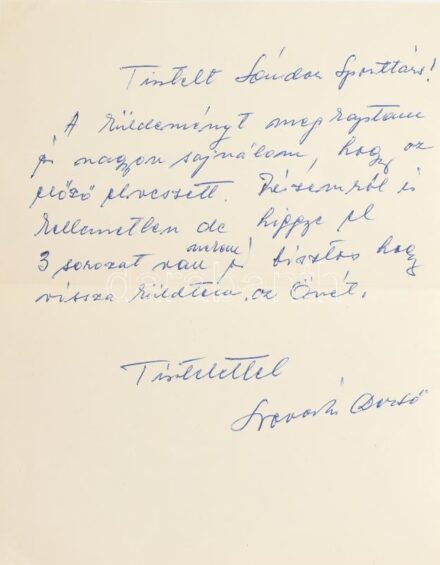 Tisztelt Sándor Sporttárs!
A küldeményt megkaptam
és nagyon sajnálom, hogy az
előző elveszett. Részemről is
kellemetlen de higgye el
nekem
3 sorozat van és biztos hogy
vissza küldtem az Önét.
Tisztelettel
Dezső